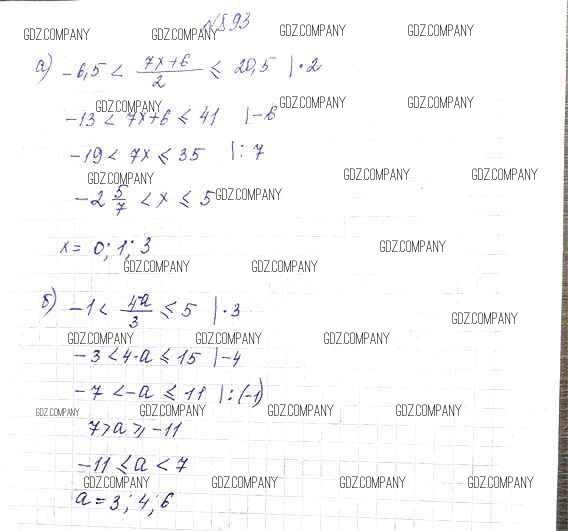 №893
GDZ.COMPANY GDZ.COMPANY GDZ.COMPANY GDZ.COMPANY
а) -6,5 < 7x+6/2 ≤ 20,5 | · 2
GDZ.COMPANY GDZ.COMPANY GDZ.COMPANY
-13 < 7x+6 ≤ 41 | -6
-19 < 7x ≤ 35 | : 7
GDZ.COMPANY GDZ.COMPANY GDZ.COMPANY
-2 5/7 < x ≤ 5 GDZ.COMPANY
x = 0; 1; 3 GDZ.COMPANY
GDZ.COMPANY GDZ.COMPANY
б) -1 < 4-a/3 ≤ 5 | · 3
GDZ.COMPANY
GDZ.COMPANY GDZ.COMPANY GDZ.COMPANY
-3 < 4-a ≤ 15 | -4
-7 < -a ≤ 11 | : (-1)
GDZ.COMPANY GDZ.COMPANY GDZ.COMPANY GDZ.COMPANY
7 > a ≥ -11
-11 ≤ a < 7
GDZ.COMPANY GDZ.COMPANY GDZ.COMPANY GDZ.COMPANY
a = 3; 4; 6